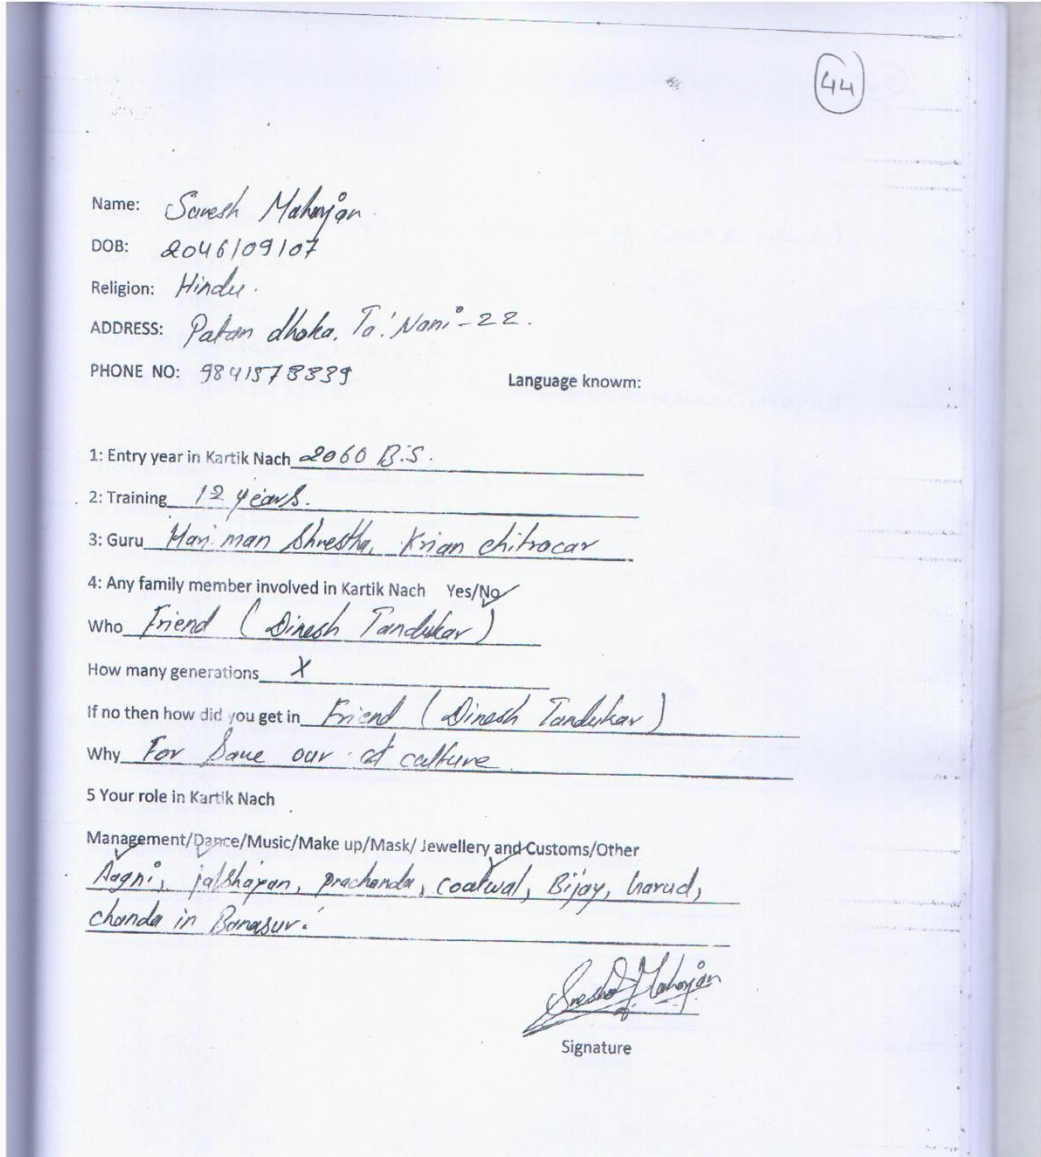 44
Name: Suresh Maharjan
DOB: 2046/09/07
Religion: Hindu.
ADDRESS: Patan dhoka. Ta: Nani-22.
PHONE NO: 9841578339 Language knowm:
1: Entry year in Kartik Nach 2060 B.S.
2: Training 12 years.
3: Guru Hari man Shrestha, Krian chitrocar
4: Any family member involved in Kartik Nach Yes/No
Who Friend (Dinesh Tandukar)
How many generations X
If no then how did you get in Friend (Dinesh Tandukar)
Why For Save our culture
5 Your role in Kartik Nach
Management/Dance/Music/Make up/Mask/ Jewellery and Customs/Other
Aagni, jalshayan, prachanda, coatwal, Bijay, harud,
chanda in Banasur.
Suresh Maharjan
Signature